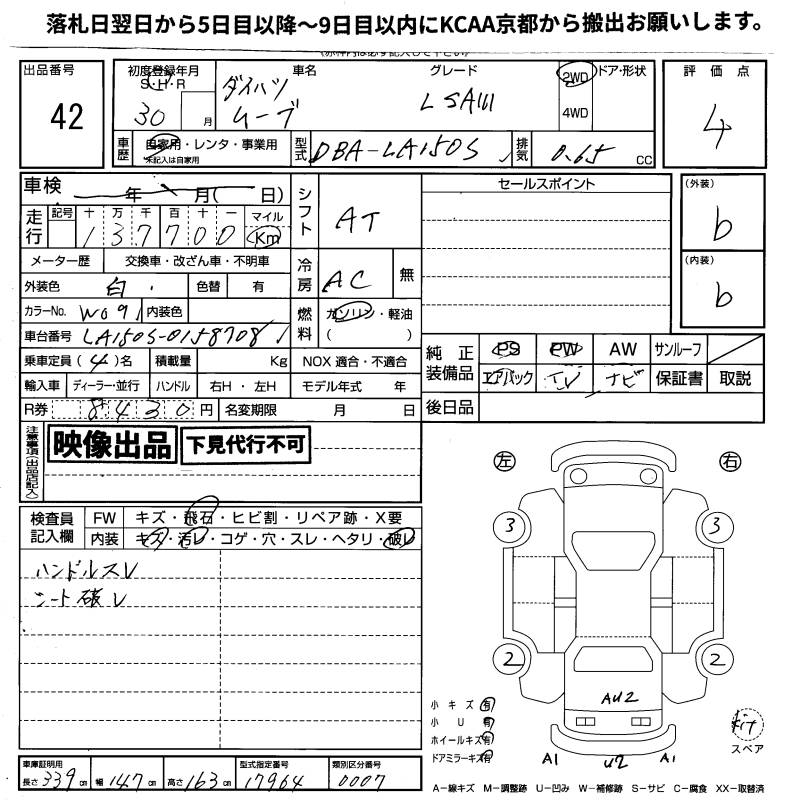 落札日翌日から5日目以降～9日目以内にKCAA京都から搬出お願いします。
出品番号 初度登録年月 車名 グレード ドア・形状 評価点
S・H・R ダイハツ 2WD
42 30 月 ムーブ L SAⅢ 4WD 4
車歴 自家用・レンタ・事業用 型式 DBA-LA150S 排気 0.65 CC
未記入は自家用
車検 年 月( 日) シフト AT セールスポイント (外装)
走行 記号 十 万 千 百 十 一 マイル b
1 3 7 7 0 0 Km
メーター歴 交換車・改ざん車・不明車 冷房 AC 無 (内装)
外装色 白 色替 有 b
カラーNo. W09 内装色 燃料 ガソリン・軽油
車台番号 LA150S-0158708 ( )
乗車定員 (4)名 積載量 Kg NOX 適合・不適合 純正装備品 PS PW AW サンルーフ
輸入車 ディーラー・並行 ハンドル 右H・左H モデル年式 年 エアバック TV ナビ 保証書 取説
R券 8430 円 名変期限 月 日 後日品
注意事項(出品店記入) 映像出品 下見代行不可
左 右
検査員記入欄 FW キズ・飛石・ヒビ割・リペア跡・X要
内装 キズ・汚レ・コゲ・穴・スレ・ヘタリ・破レ
3 3
ハンドルスレ
シート破レ
2 2
AU2
小キズ 有
小U 有
ホイールキズ 有
ドアミラーキズ 有
スペア
A1 U2 A1
車庫証明用 型式指定番号 類別区分番号
長さ 339 cm 幅 147 cm 高さ 163 cm 17964 0007
A-線キズ M-調整跡 U-凹み W-補修跡 S-サビ C-腐食 XX-取替済